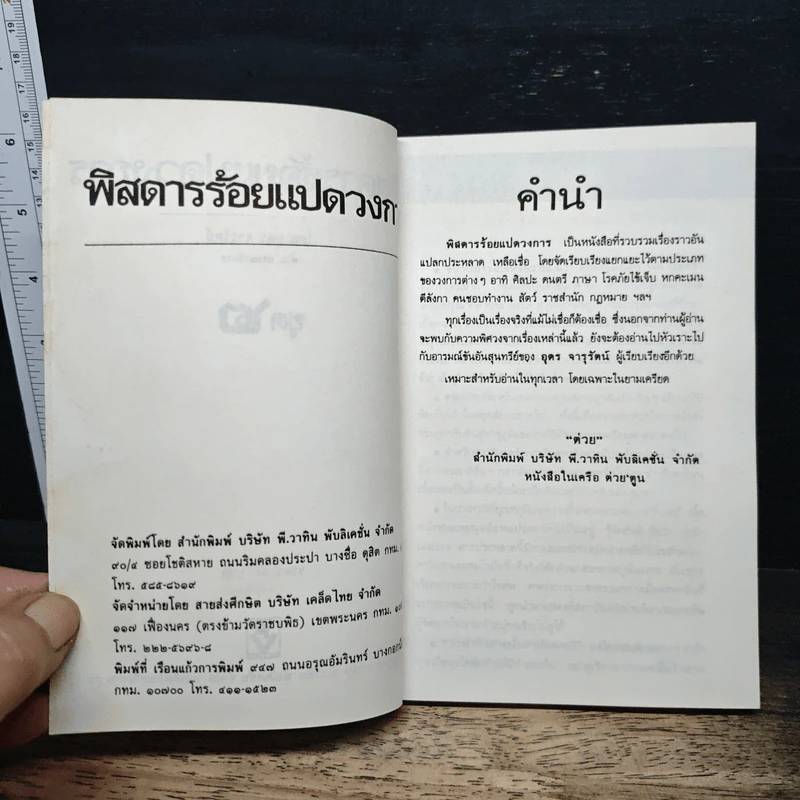 พิสดารร้อยแปดวงกา
จัดพิมพ์โดย สำนักพิมพ์ บริษัท พี.วาทิน พับลิเคชั่น จำกัด
๙๐/๔ ซอยโชติสหาย ถนนริมคลองประปา บางซื่อ ดุสิต กทม.
โทร. ๕๘๕-๘๖๑๙
จัดจำหน่ายโดย สายส่งศึกษิต บริษัท เคล็ดไทย จำกัด
๑๑๗ เฟื่องนคร (ตรงข้ามวัดราชบพิธ) เขตพระนคร กทม.
โทร. ๒๒๒-๕๖๙๖-๘
พิมพ์ที่ เรือนแก้วการพิมพ์ ๙๔๗ ถนนอรุณอัมรินทร์
กทม. ๑๐๗๐๐ โทร. ๔๑๑-๑๕๒๓
คำนำ
พิสดารร้อยแปดวงการ เป็นหนังสือที่รวบรวมเรื่องราวอัน
แปลกประหลาด เหลือเชื่อ โดยจัดเรียบเรียงแยกแยะไว้ตามประเภท
ของวงการต่างๆ อาทิ ศิลปะ ดนตรี ภาษา โรคภัยไข้เจ็บ หกคะเมน
ตีลังกา คนชอบทำงาน สัตว์ ราชสำนัก กฎหมาย ฯลฯ
ทุกเรื่องเป็นเรื่องจริงที่แม้ไม่เชื่อก็ต้องเชื่อ ซึ่งนอกจากท่านผู้อ่าน
จะพบกับความพิศวงจากเรื่องเหล่านี้แล้ว ยังจะต้องอ่านไปหัวเราะไป
กับอารมณ์ขันอันสุนทรีย์ของ อุดร จารุรัตน์ ผู้เรียบเรียงอีกด้วย
เหมาะสำหรับอ่านในทุกเวลา โดยเฉพาะในยามเครียด
“ต่วย”
สำนักพิมพ์ บริษัท พี.วาทิน พับลิเคชั่น จำกัด
หนังสือในเครือ ต่วย'ตูน
5
6
13
14
15
16
17
18
19